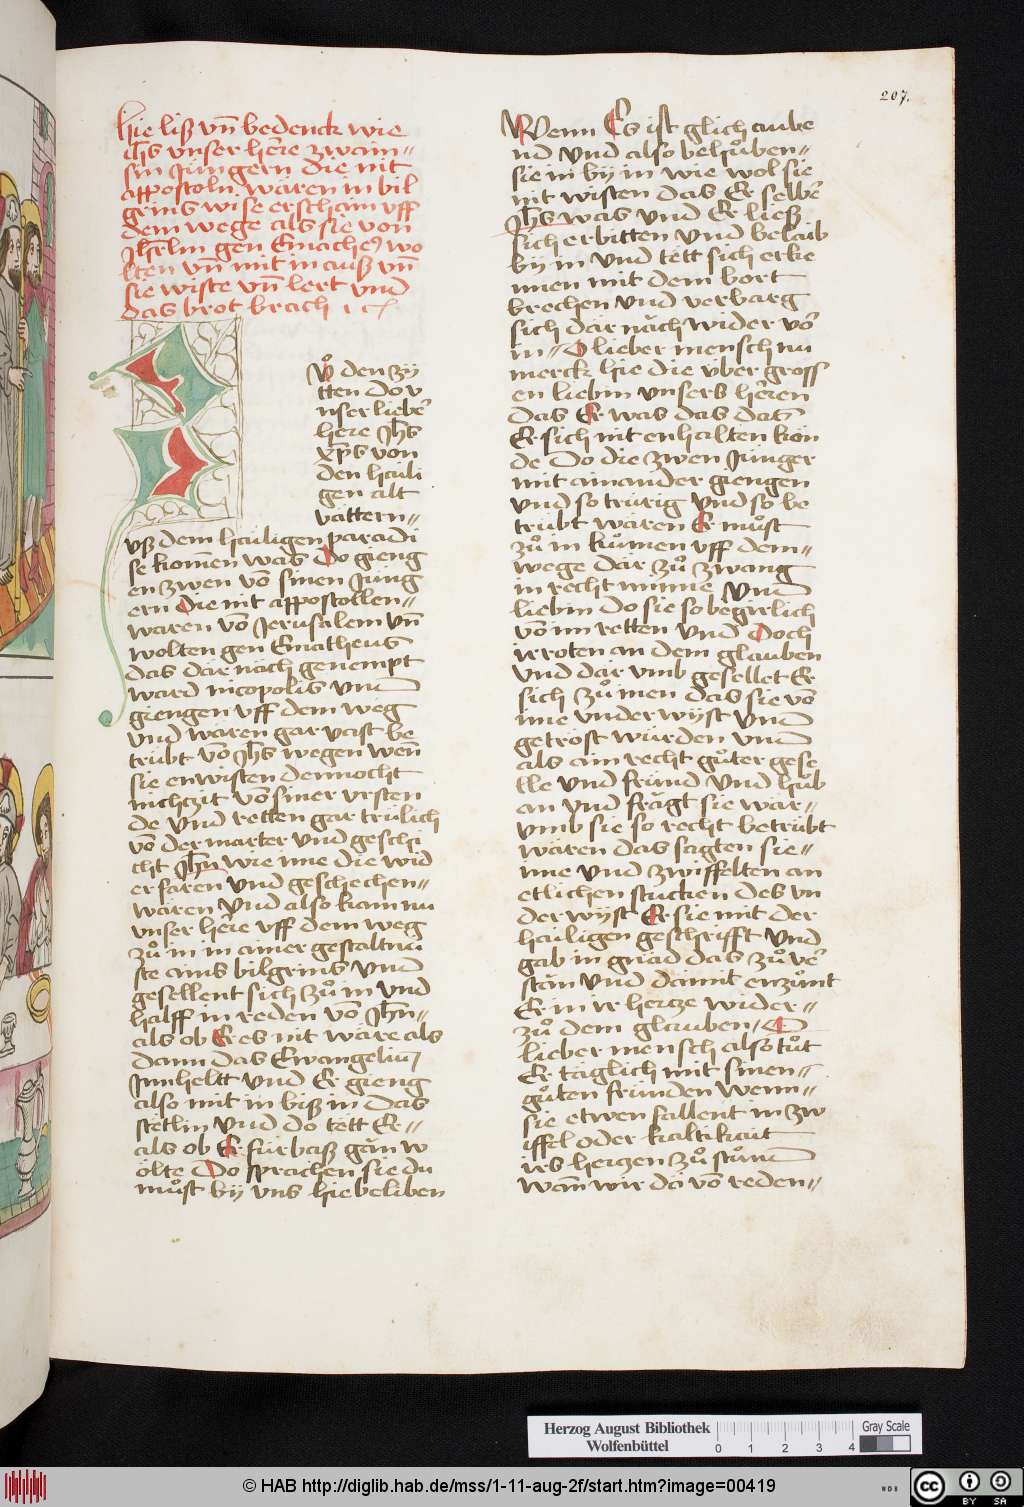 207.
hie liß vn̄ bedenck wie
ih̄s vnser her̄e zwain⸗
sin Jüngern die nit
appostoln waren in bil
grins wise erschain vff
dem wege als sie von
Jhr̄lm gen Emaheꝰ wo
lten vn̄ mit in auß vn̄
sie wiste vn̄ lert vnd
das brot brach
Zů den zÿ
tten do v
nser liebeʳ
here Jh̄s
xp̄s von
den haili
gen alt
vättern⸗
vß dem hailigen paradi
se komen was Do gieng
en zwen vō sinen Jüng
ern Die nit appostollen⸗
waren vō Jerusalem vn̄
wolten gen Ematheus
das dar nach genempt
ward nicopolis vnd
giengen vff dem weg
vnd wären gar vast be
trübt vō Jh̄s wegen wen̄
sie enwisten dennocht
nichtzit vō siner vrsten
de vnd retten gar trülich
vō der marter vnd geschi
cht Jh̄n wie ime die wid
erfaren vnd geschechen⸗
wären vnd also kam nu
vnser her̄e vff dem weg
zů in in ainer gestaltnu
ste ains bilgrins vnd
gesellent sich zů in vnd
halff in reden vō Jh̄n⸗
als ob Er es nit wäre als
dann das Ewangeliu
Jnnheltt vnd Er gieng
also mit in biß in das
stetlin vnd do tett Er⸗
als ob Er fürbaß gän w
ölte Do sprachen sie du
můst bÿ vns hie beliben
Wenn Es ist glich aube
nd vnd also behůben⸗
sie in bÿ in wie wol sie
nit wisten das Er selbeʳ
Jh̄s was vnd Er ließ
sich erbitten vnd belaib
bÿ in vnd tett sich erke
nnen mit dem bort
brechen vnd verbarg
sich dar näch wider voʳ
in⸗ O lieber mensch nu
merck hie die über gross
en liebin vnsers her̄en
das Er was das das
Er sich nit enhalten kön
de Do die zwen Jünger
mit ainander giengen
vnd so trürig vnd so be
trübt wären Er můst
zů in kůmen vff dem⸗
wege dar zů zwang
in recht minne vnd
liebin Do sie so begirlich
vō im retten vnd Doch
irroten an dem glauben
vnd dar vmb gesellet Er
sich zů inen das sie vō
ime vnder wÿst vnd
getröst wurden vnd
als ain recht gůter gese
lle vnd fründ vnd hůb
an vnd frägt sie war⸗
vmb sie so recht betrübt
wären das sagten sie⸗
ime vnd zwiffelten an
etlichen stucken des vn
der wÿst Er sie mit der
hailigen geschrifft vnd
gab in gnad das zů veʳ
stän vnd damit enzůnt
Er in ir hertze wider⸗
zů dem glauben⸗ O
lieber mensch also tůt
Er täglich mit sinen⸗
gůten fründen Wenn⸗
sie etwen fallent in zw
iffel oder kaltikait
irs hertzen zů stůnd
wan̄ wir da vō reden⸗
Herzog August Bibliothek
Wolfenbüttel
0 1 2 3 4
Gray Scale
© HAB http://diglib.hab.de/mss/1-11-aug-2f/start.htm?image=00419
WDB
cc BY SA